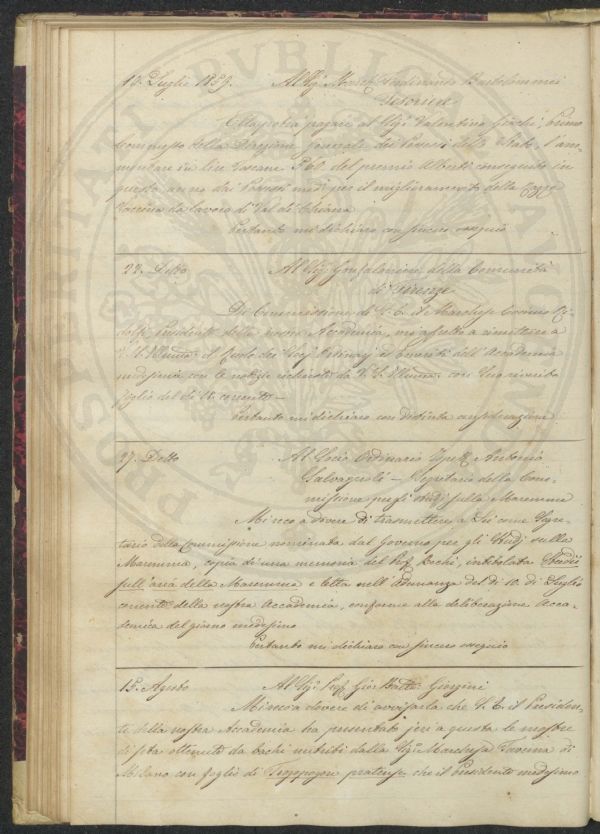 10. Luglio 1859. Al Sig. March. Ferdinando Bartolommei
Assessore
Ella potrà pagare al Sig. Valentino Giachi, Primo
Computista della Direzione generale dei Lavori dello Stato, l'am-
montare in Lire Toscane 560. del premio Alberti conseguito in
questo anno dai Possidenti per il miglioramento della Razza
Vaccina da lavoro di Val di Chiana
Pertanto mi dichiaro con sincero ossequio
22. Detto Al Sig. Gonfaloniere della Comunità
di Firenze
Di Commissione di S. E. il Marchese Cosimo Ri-
dolfi, Presidente della nostra Accademia, mi affretto a rimettere a
V. S. Illma. il Ruolo dei Soci Ordinarj ed Emeriti dell'Accademia
medesima con le notizie richieste da V. S. Illma. con Suo riverito
foglio del dì 18. corrente —
Pertanto mi dichiaro con distinta considerazione
27. Detto Al Socio Ordinario Antonio
Salvagnoli — Segretario della Com-
missione pegli studj sulla Maremma
Mi reco a dovere di trasmettere a Lei come Segre-
tario della Commissione nominata dal Governo per gli Studj sulla
Maremma, copia di una memoria del Prof. Bechi, intitolata Studii
sull'aria della Maremma e letta nell'Adunanza del dì 10. di Luglio
corrente della nostra Accademia, conforme alla deliberazione Acca-
demica del giorno medesimo
Pertanto mi dichiaro con sincero ossequio
15. Agosto Al Sig. Prof. Gio: Batta. Giorgini
Mi reco a dovere di avvisarla che S. E. il Presiden-
te della nostra Accademia ha presentato jeri a questa le mostre
di seta ottenute da bachi nutriti dalla Sig.ra Marchesa Taverna di
Milano con foglie di Tragopogon pratense, che il Presidente medesimo